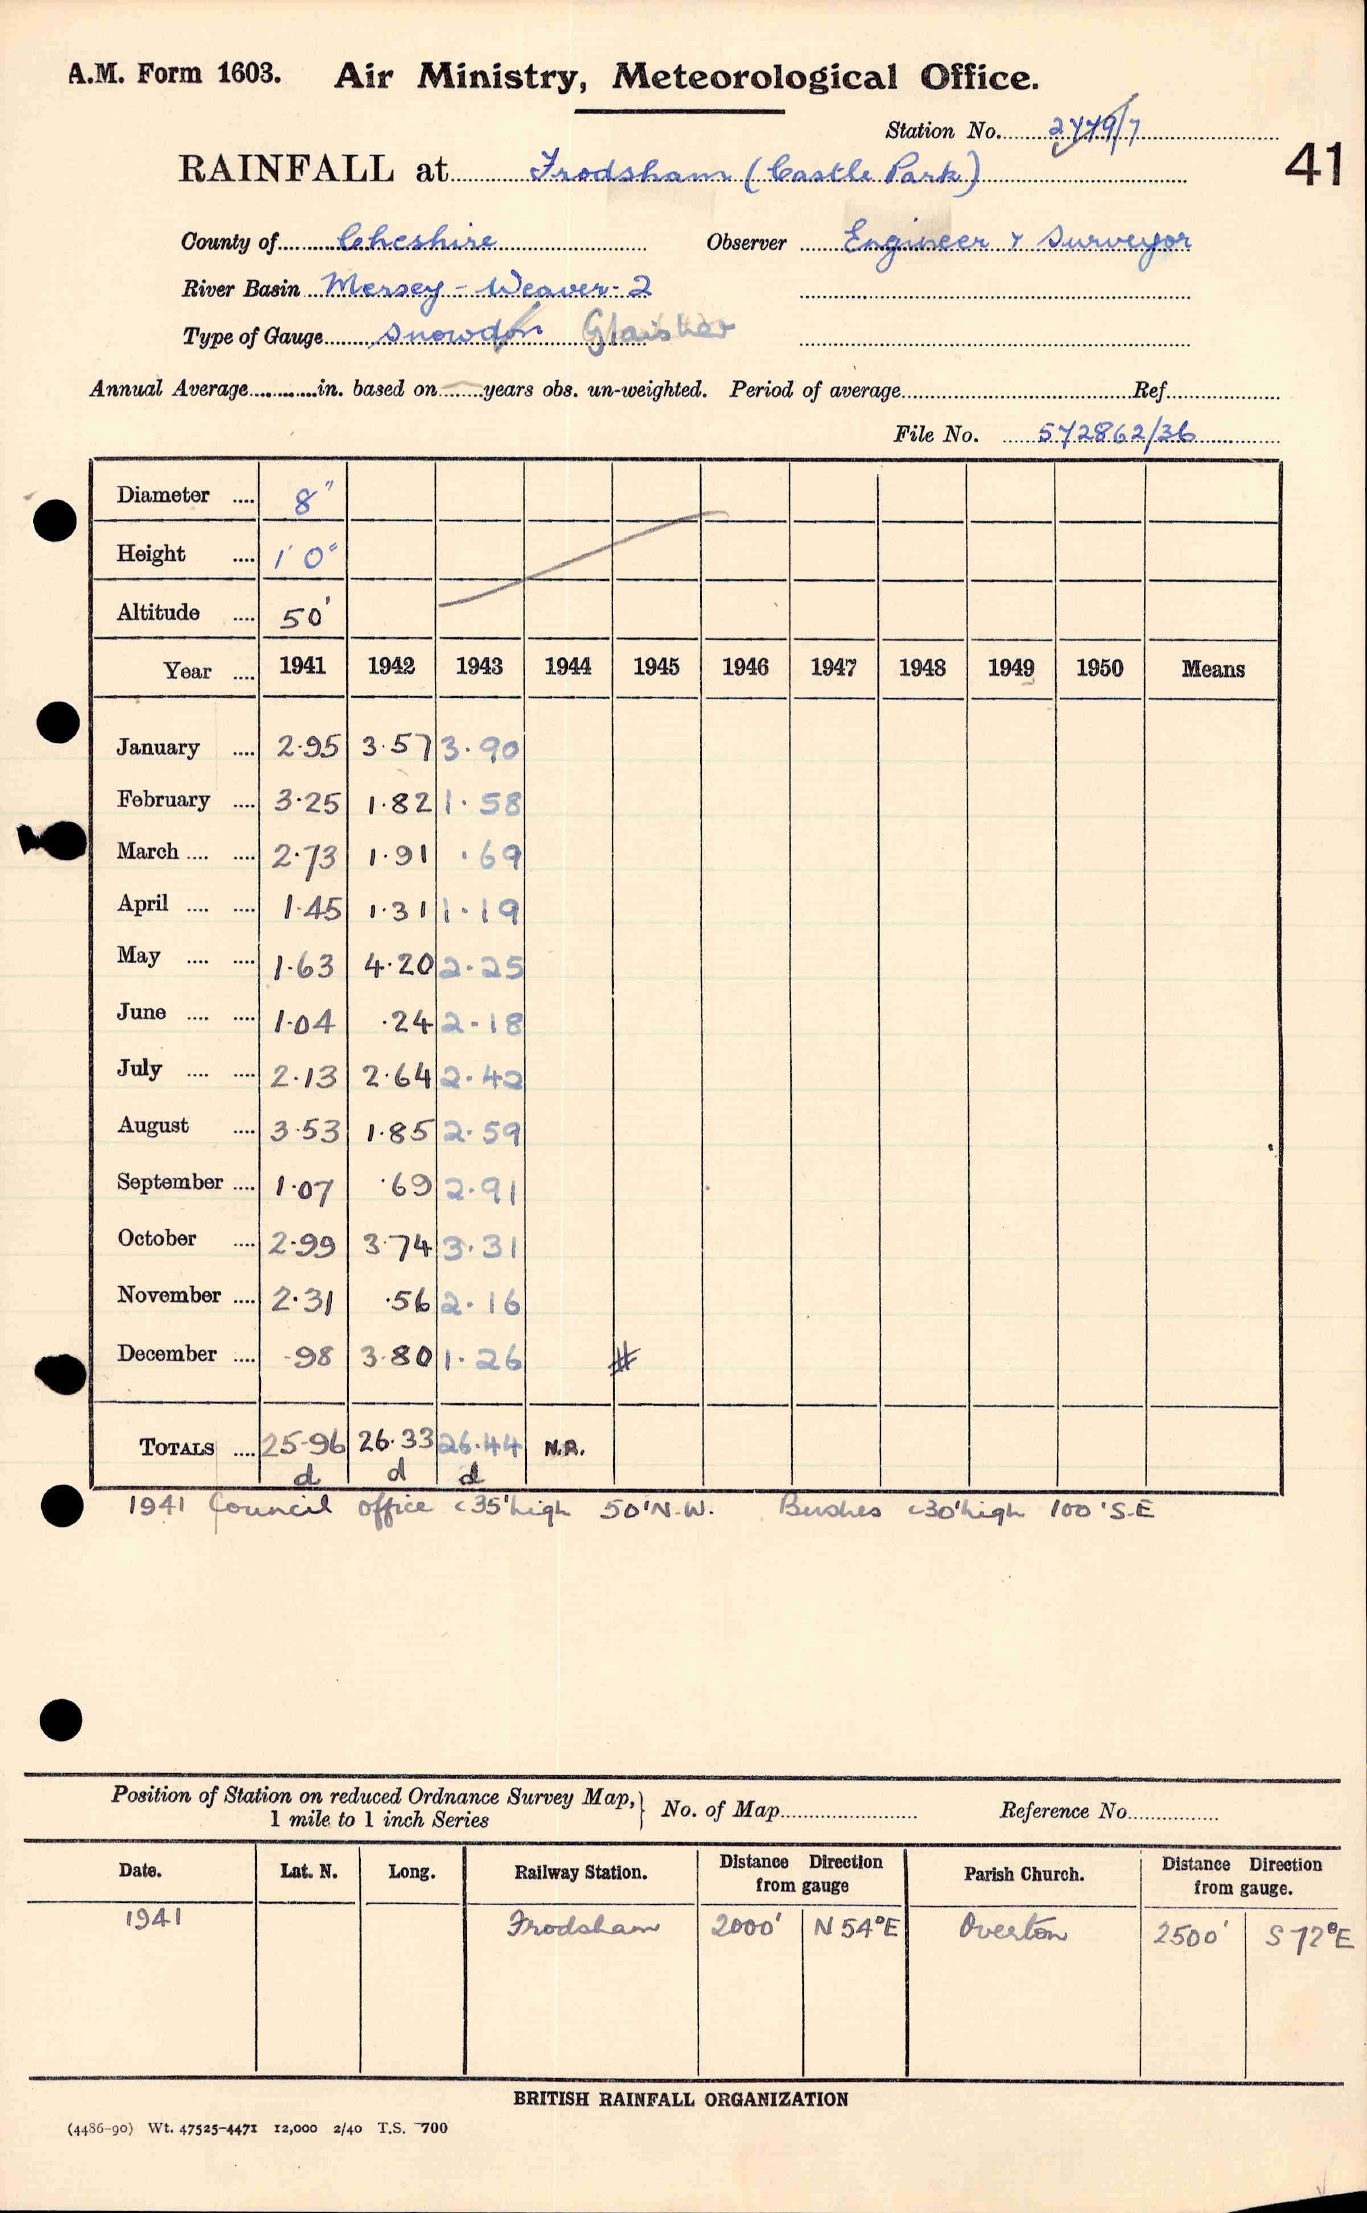 A.M. Form 1603. Air Ministry, Meteorological Office.
Station No. 2779/7
41
RAINFALL at Frodsham (Castle Park)
County of Cheshire Observer Engineer & Surveyor
River Basin Mersey - Weaver - 2
Type of Gauge Snowdon Glaisher
Annual Average in. based on years obs. un-weighted. Period of average Ref.
File No. 572862/36
Diameter .... 8"
Height .... 1' 0"
Altitude .... 50'
Year .... 1941 1942 1943 1944 1945 1946 1947 1948 1949 1950 Means
January .... 2.95 3.57 3.90
February .... 3.25 1.82 1.58
March .... .... 2.73 1.91 .69
April .... .... 1.45 1.31 1.19
May .... .... 1.63 4.20 2.25
June .... .... 1.04 .24 2.18
July .... .... 2.13 2.64 2.42
August .... 3.53 1.85 2.59
September .... 1.07 .69 2.91
October .... 2.99 3.74 3.31
November .... 2.31 .56 2.16
December .... .98 3.80 1.26 #
TOTALS .... 25.96 26.33 26.44 N.R.
d d d
1941 Council office <35' high 50' N.W. Bushes <30' high 100' S.E
Position of Station on reduced Ordnance Survey Map, 1 mile to 1 inch Series } No. of Map Reference No.
Date. Lat. N. Long. Railway Station. Distance from gauge Direction Parish Church. Distance from gauge. Direction
1941 Frodsham 2000' N 54° E Overton 2500' S 72° E
BRITISH RAINFALL ORGANIZATION
(4486-90) Wt. 47525-4471 12,000 2/40 T.S. 700